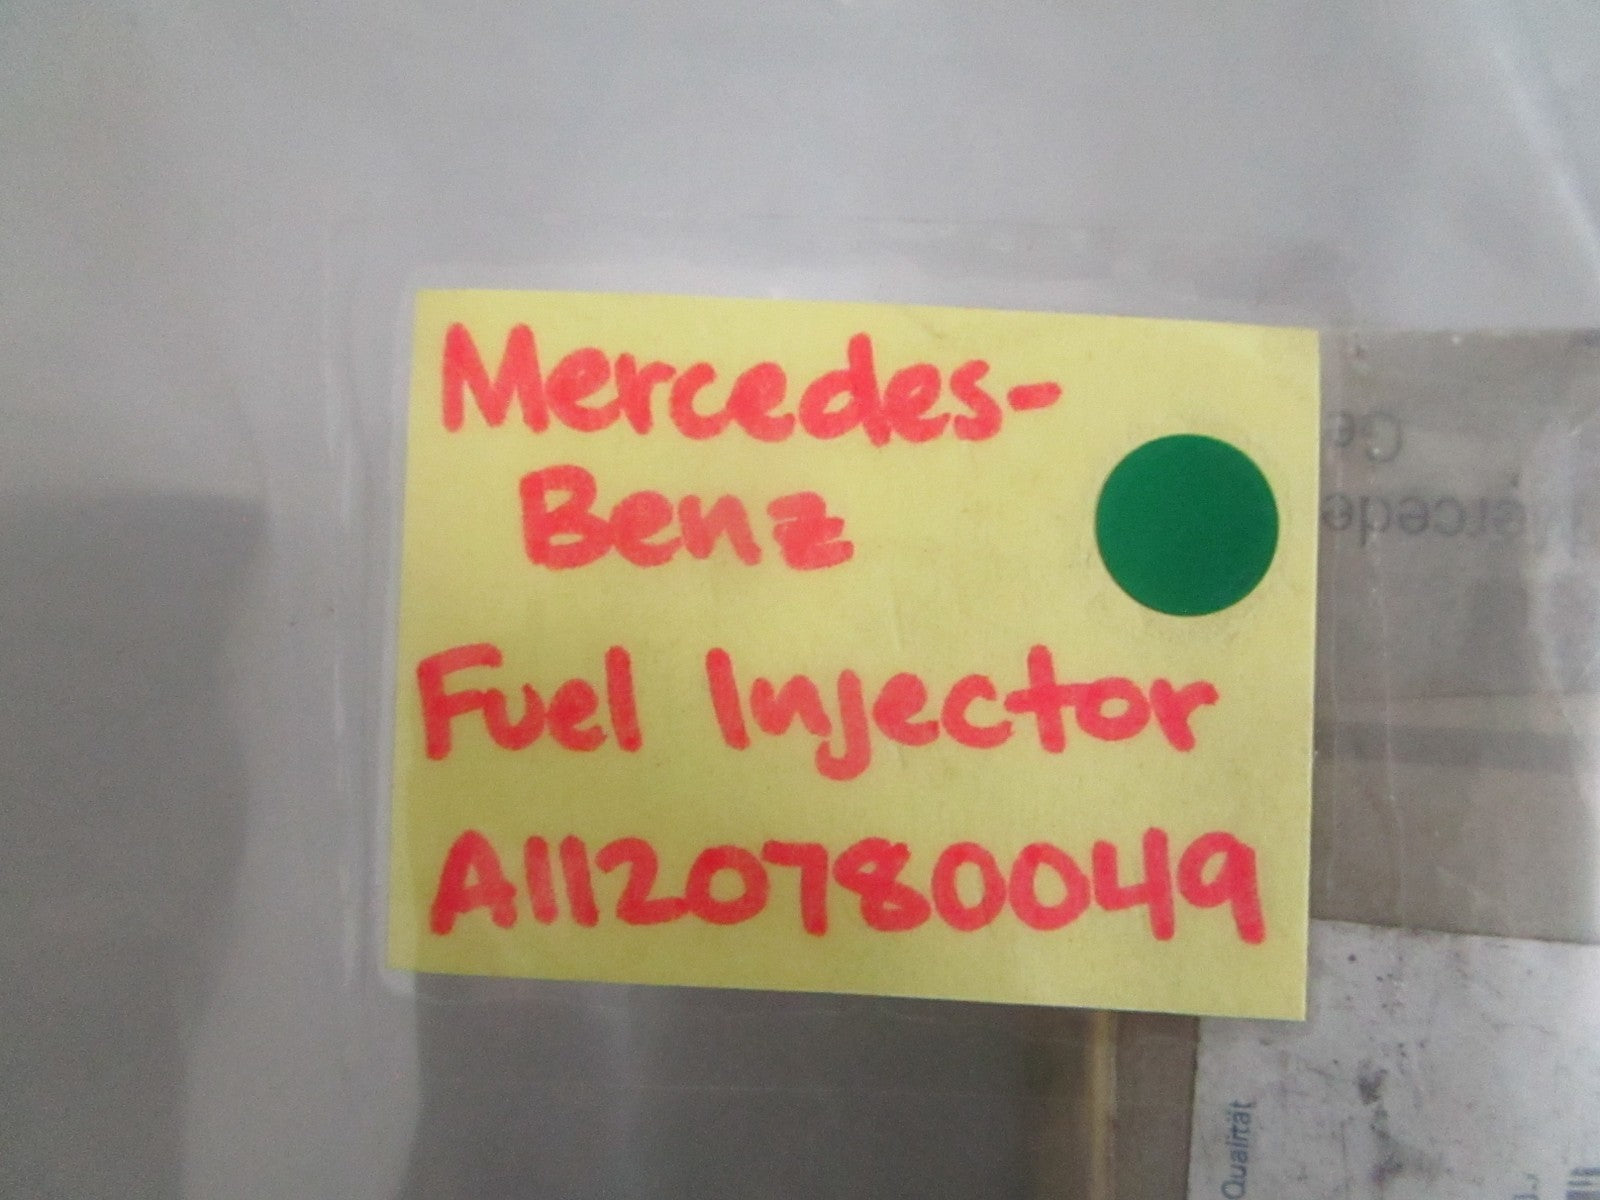 Mercedes-
Benz
Fuel Injector
A1120780049
Qualität